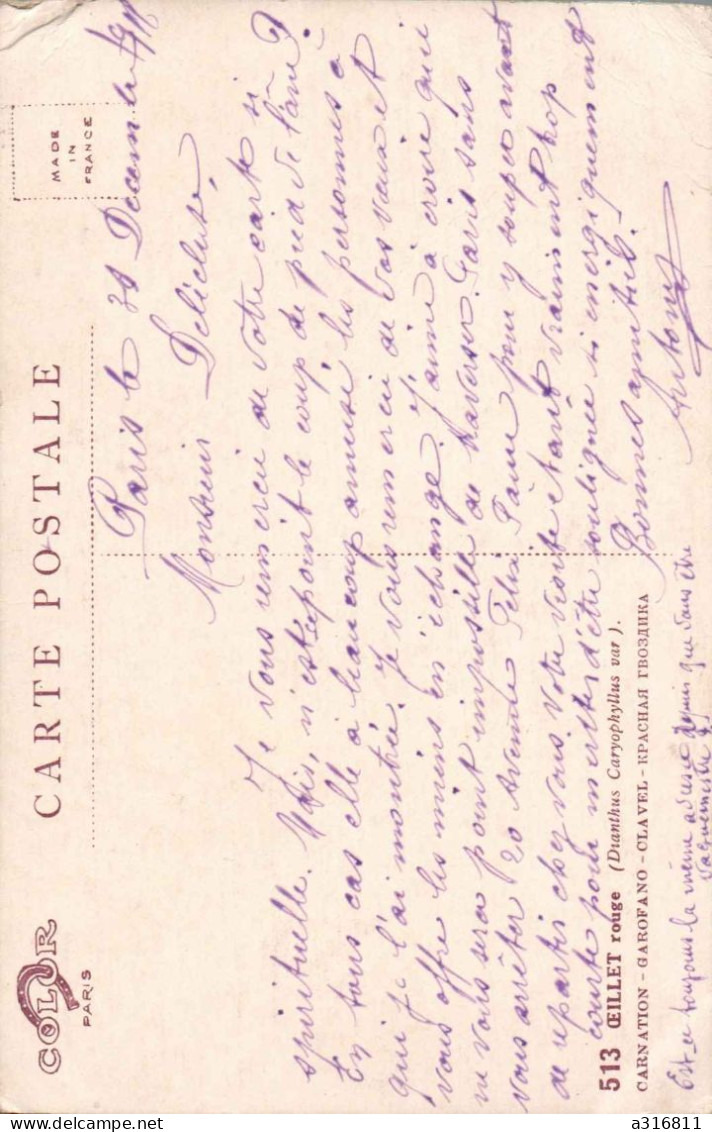 COLOR
PARIS
CARTE POSTALE
MADE
IN
FRANCE
Paris le 31 Décembre
Monsieur Delécluse,
Je vous remercie de votre carte si
spirituelle. Mais, n'est-ce point le coup de pied de l'âne ?
En tous cas elle a beaucoup amusé les personnes à
qui je l'ai montrée. Je vous remercie de vos vœux et
vous offre les miens en échange. J'aime à croire qu'il
ne vous sera point impossible de traverser Paris sans
vous arrêter 20 Avenue Félix Faure pour y souper avant
de repartir chez vous. Votre visite étant vraiment trop
courte pour mériter d'être soulignée si énergiquement
Bonnes amitiés.
513 ŒILLET rouge (Dianthus Caryophyllus var ).
CARNATION - GAROFANO - CLAVEL - КРАСНАЯ ГВОЗДИКА
Est-ce toujours la même adresse depuis que vous être
delcampe.net
a316811